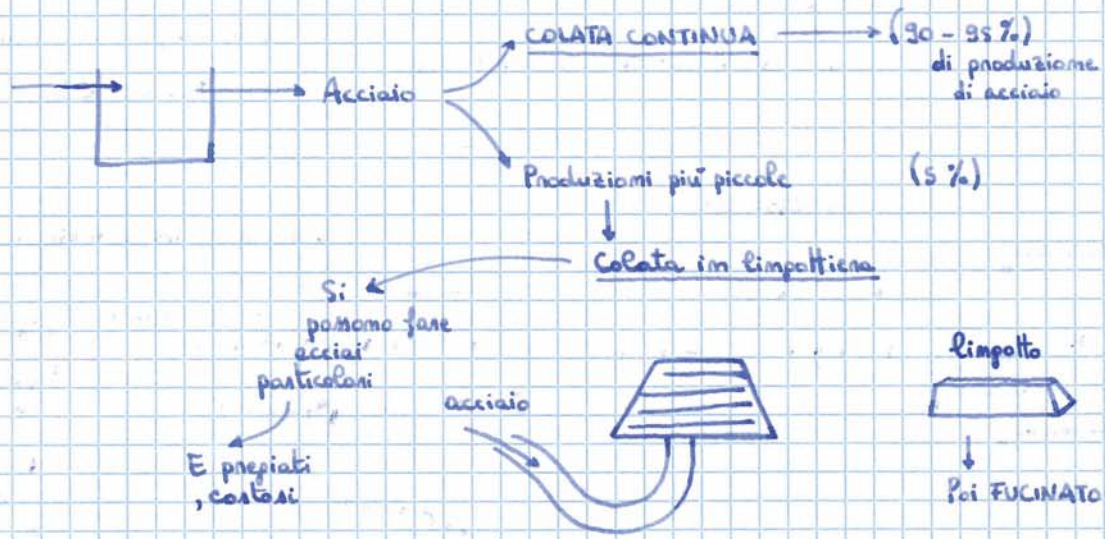 Acciaio
COLATA CONTINUA
(90 - 95 %)
di produzione
di acciaio
Produzioni più piccole
(5 %)
Colata in lingottiera
Si
possono fare
acciai
particolari
E pregiati
, costosi
acciaio
lingotto
Poi FUCINATO